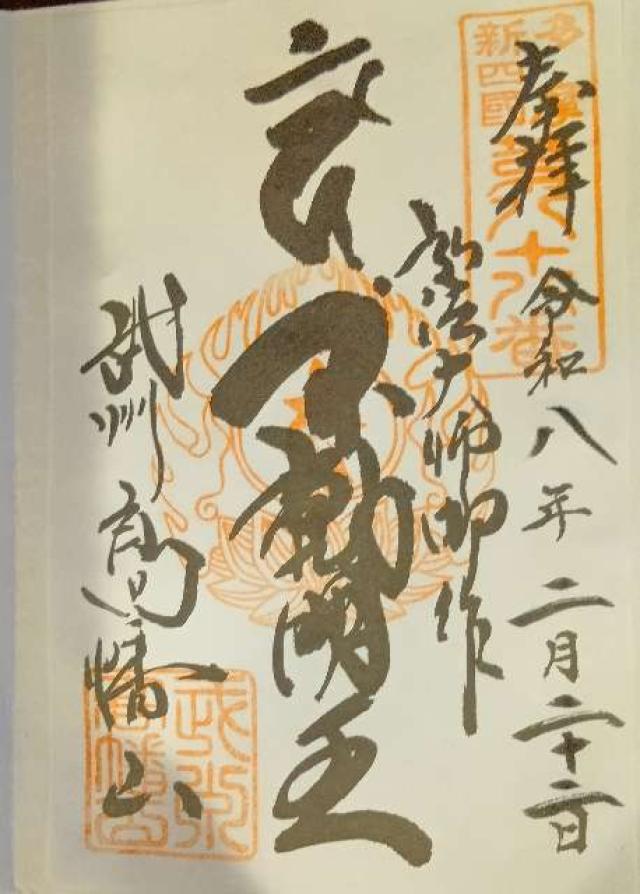 多摩
新四國
第八十八番
奉拝 令和八年二月二十二日
弘法大師御作
不動明王
武州 高幡山
武州
高幡山